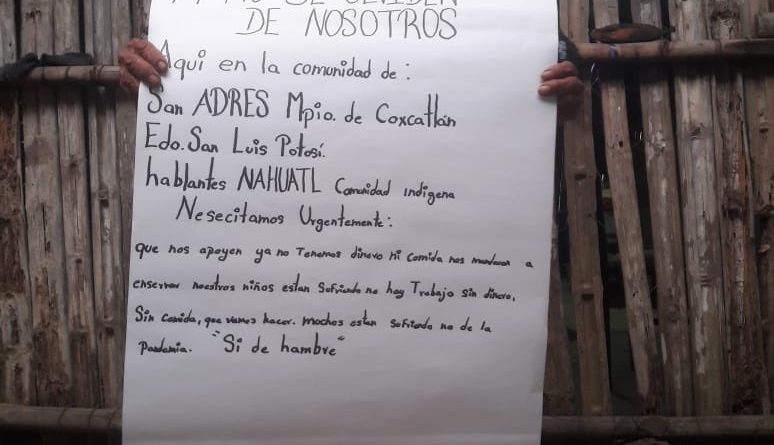 DE NOSOTROS
Aqui en la comunidad de:
San ADRES Mpio. de Coxcatlán
Edo. San Luis Potosí.
hablantes NAHUATL Comunidad indigena
Nesecitamos Urgentemente:
que nos apoyen ya no Tenemos dinero ni comida nos mandaron a
enserrar nuestros niños estan Sufriendo no hay Trabajo sin dinero,
Sin comida, que vamos hacer. muchos estan sufriendo no de la
Pandemia. "Si de hambre"